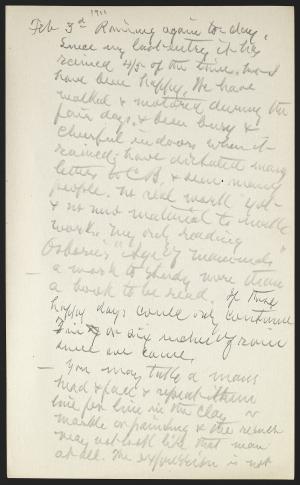 1911
Feb 3rd Raining again to-day.
Since my last entry it has
rained 4/5 of the time, but I
have been happy. We have
walked & motored during the
fair days, & been busy &
cheerful indoors when it
rained; have dictated many
letters to C.B. & seen many
people. No real work yet
& no material to
work. My only reading
Osborn's "Age of Mammals"
— a work to study more than
a book to be read. If these
happy days could only continue
Five or six inches of rain
since we came.
— You may take a mans
head & face & repeat them
line for line in the clay or
marble or painting & the result
may not look like that man
at all. The expression is not